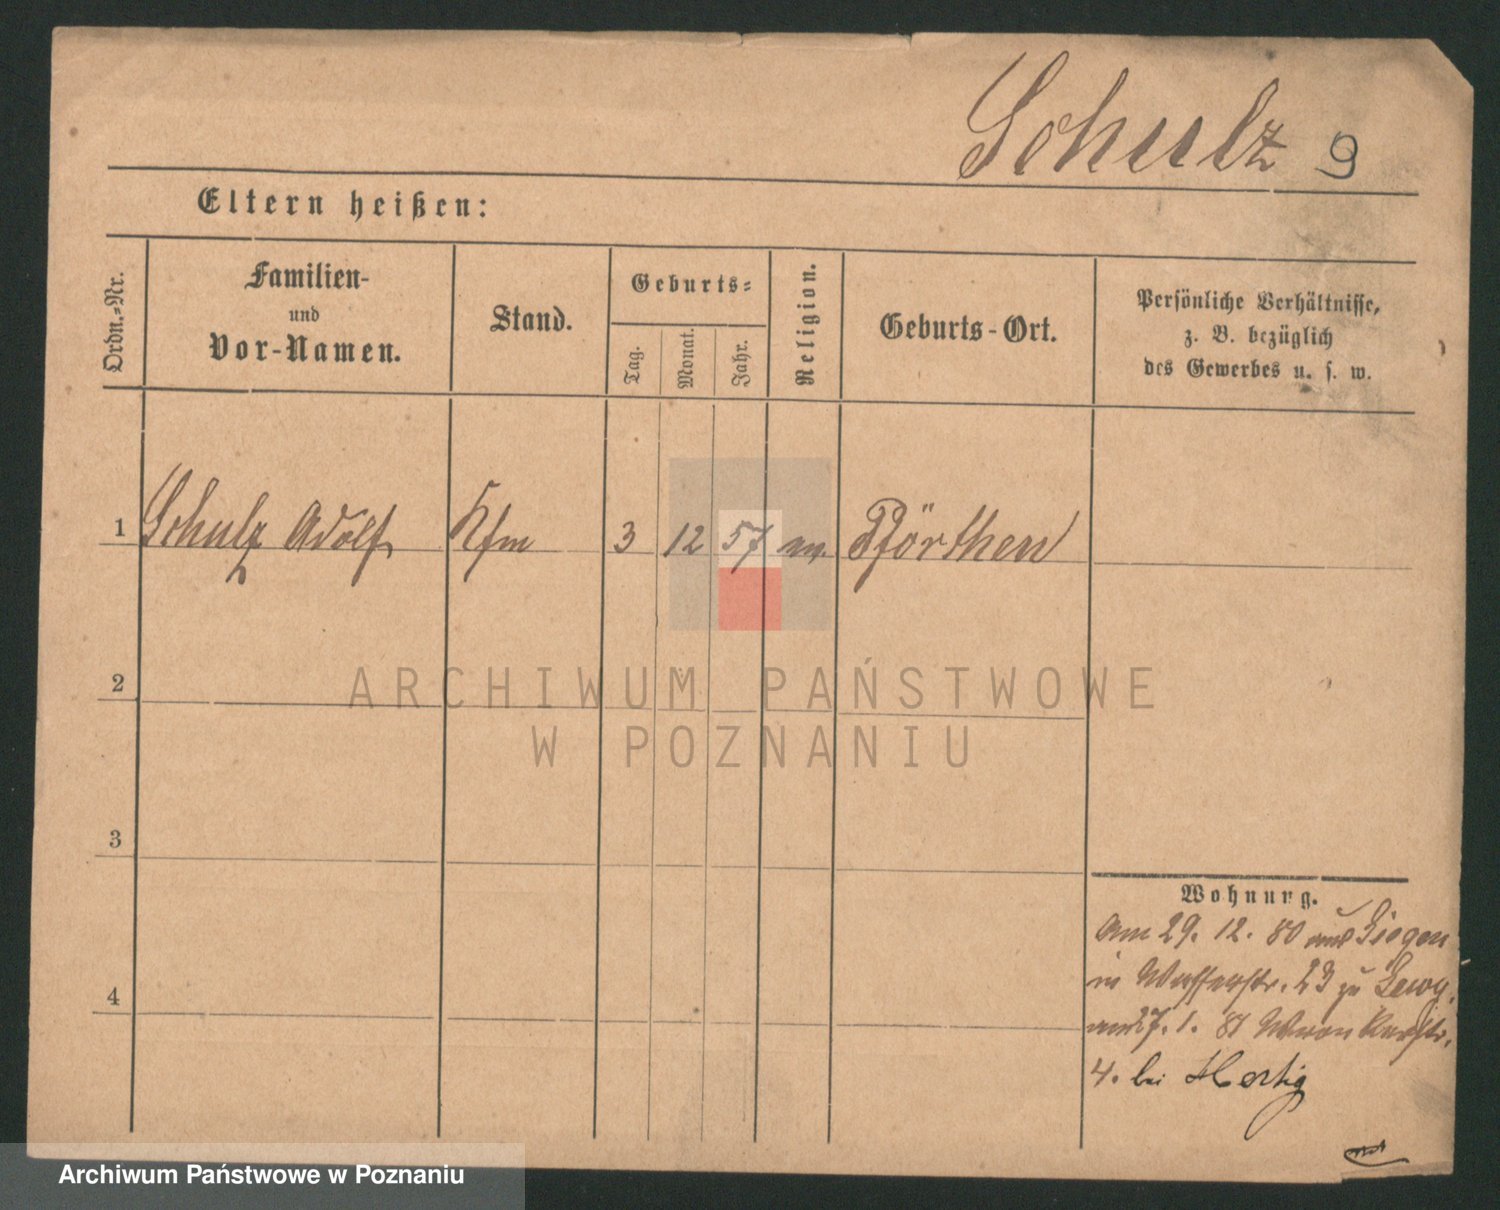 Schulz 9
Eltern heißen:
Ordn.-Nr.
Familien-
und
Vor-Namen.
Stand.
Geburts-
Tag.
Monat.
Jahr.
Religion.
Geburts-Ort.
Persönliche Verhältnisse,
z. B. bezüglich
des Gewerbes u. s. w.
1 Schulz Adolf Kfm 3 12 57 ev. Pförthen
2
3
4
Wohnung.
Am 29. 12. 80 aus
in Wasserstr. 23 zu Lewy.
am 27. 1. 81
4. bei Hertig
ARCHIWUM PAŃSTWOWE
W POZNANIU
Archiwum Państwowe w Poznaniu